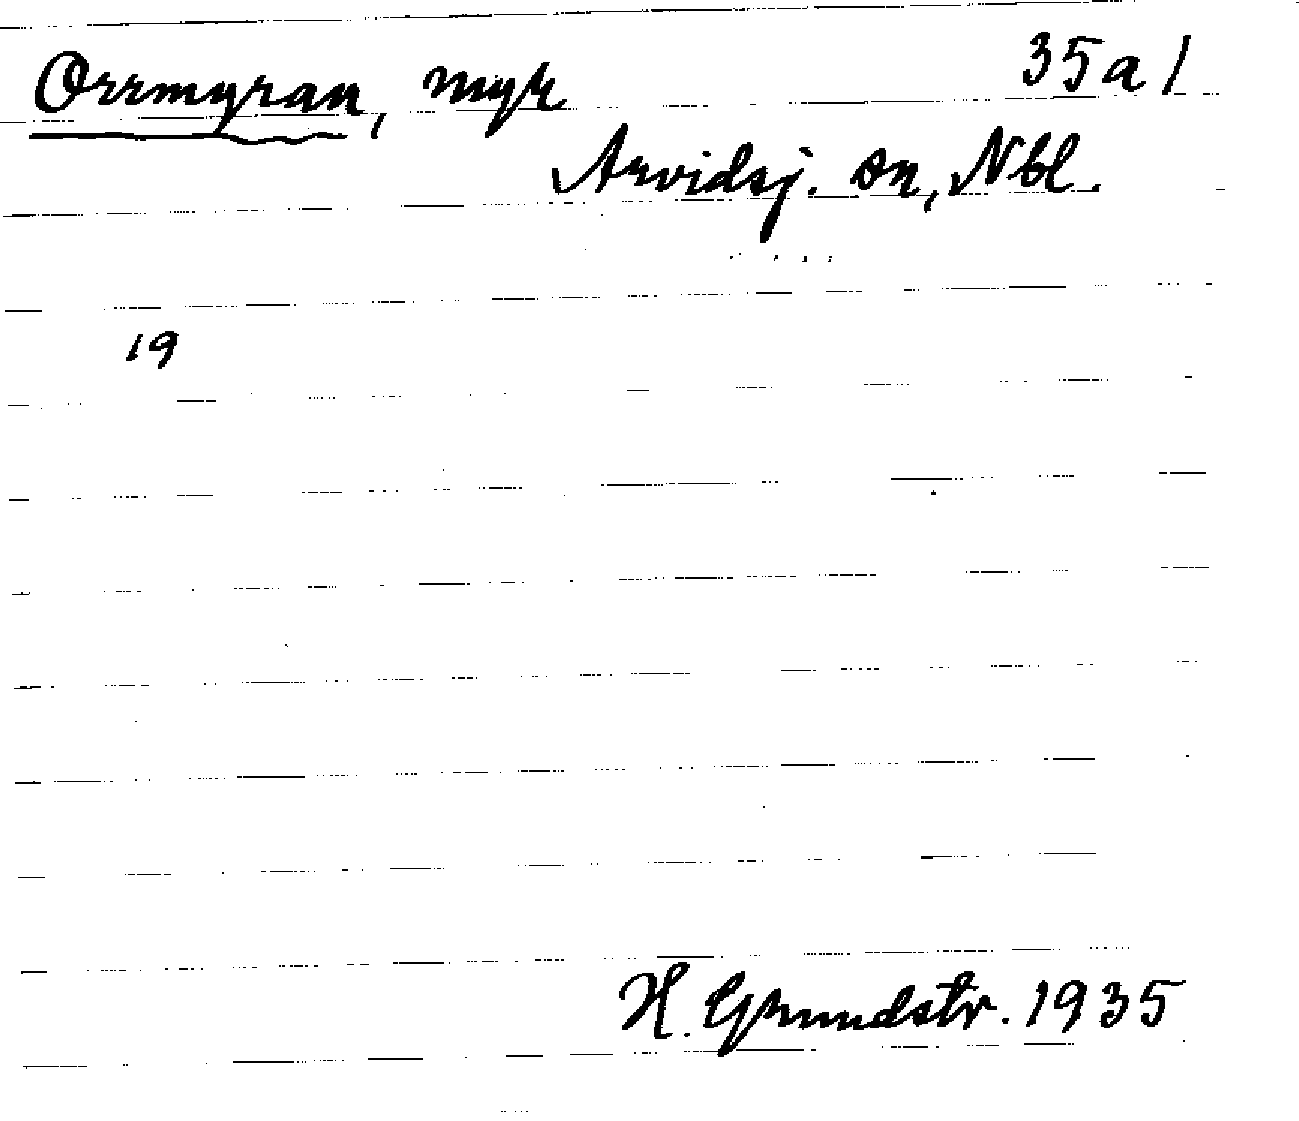 Orrmyran, myr 35a1
Arvidsj. sn, Nbl.
19
H. Grundstr. 1935